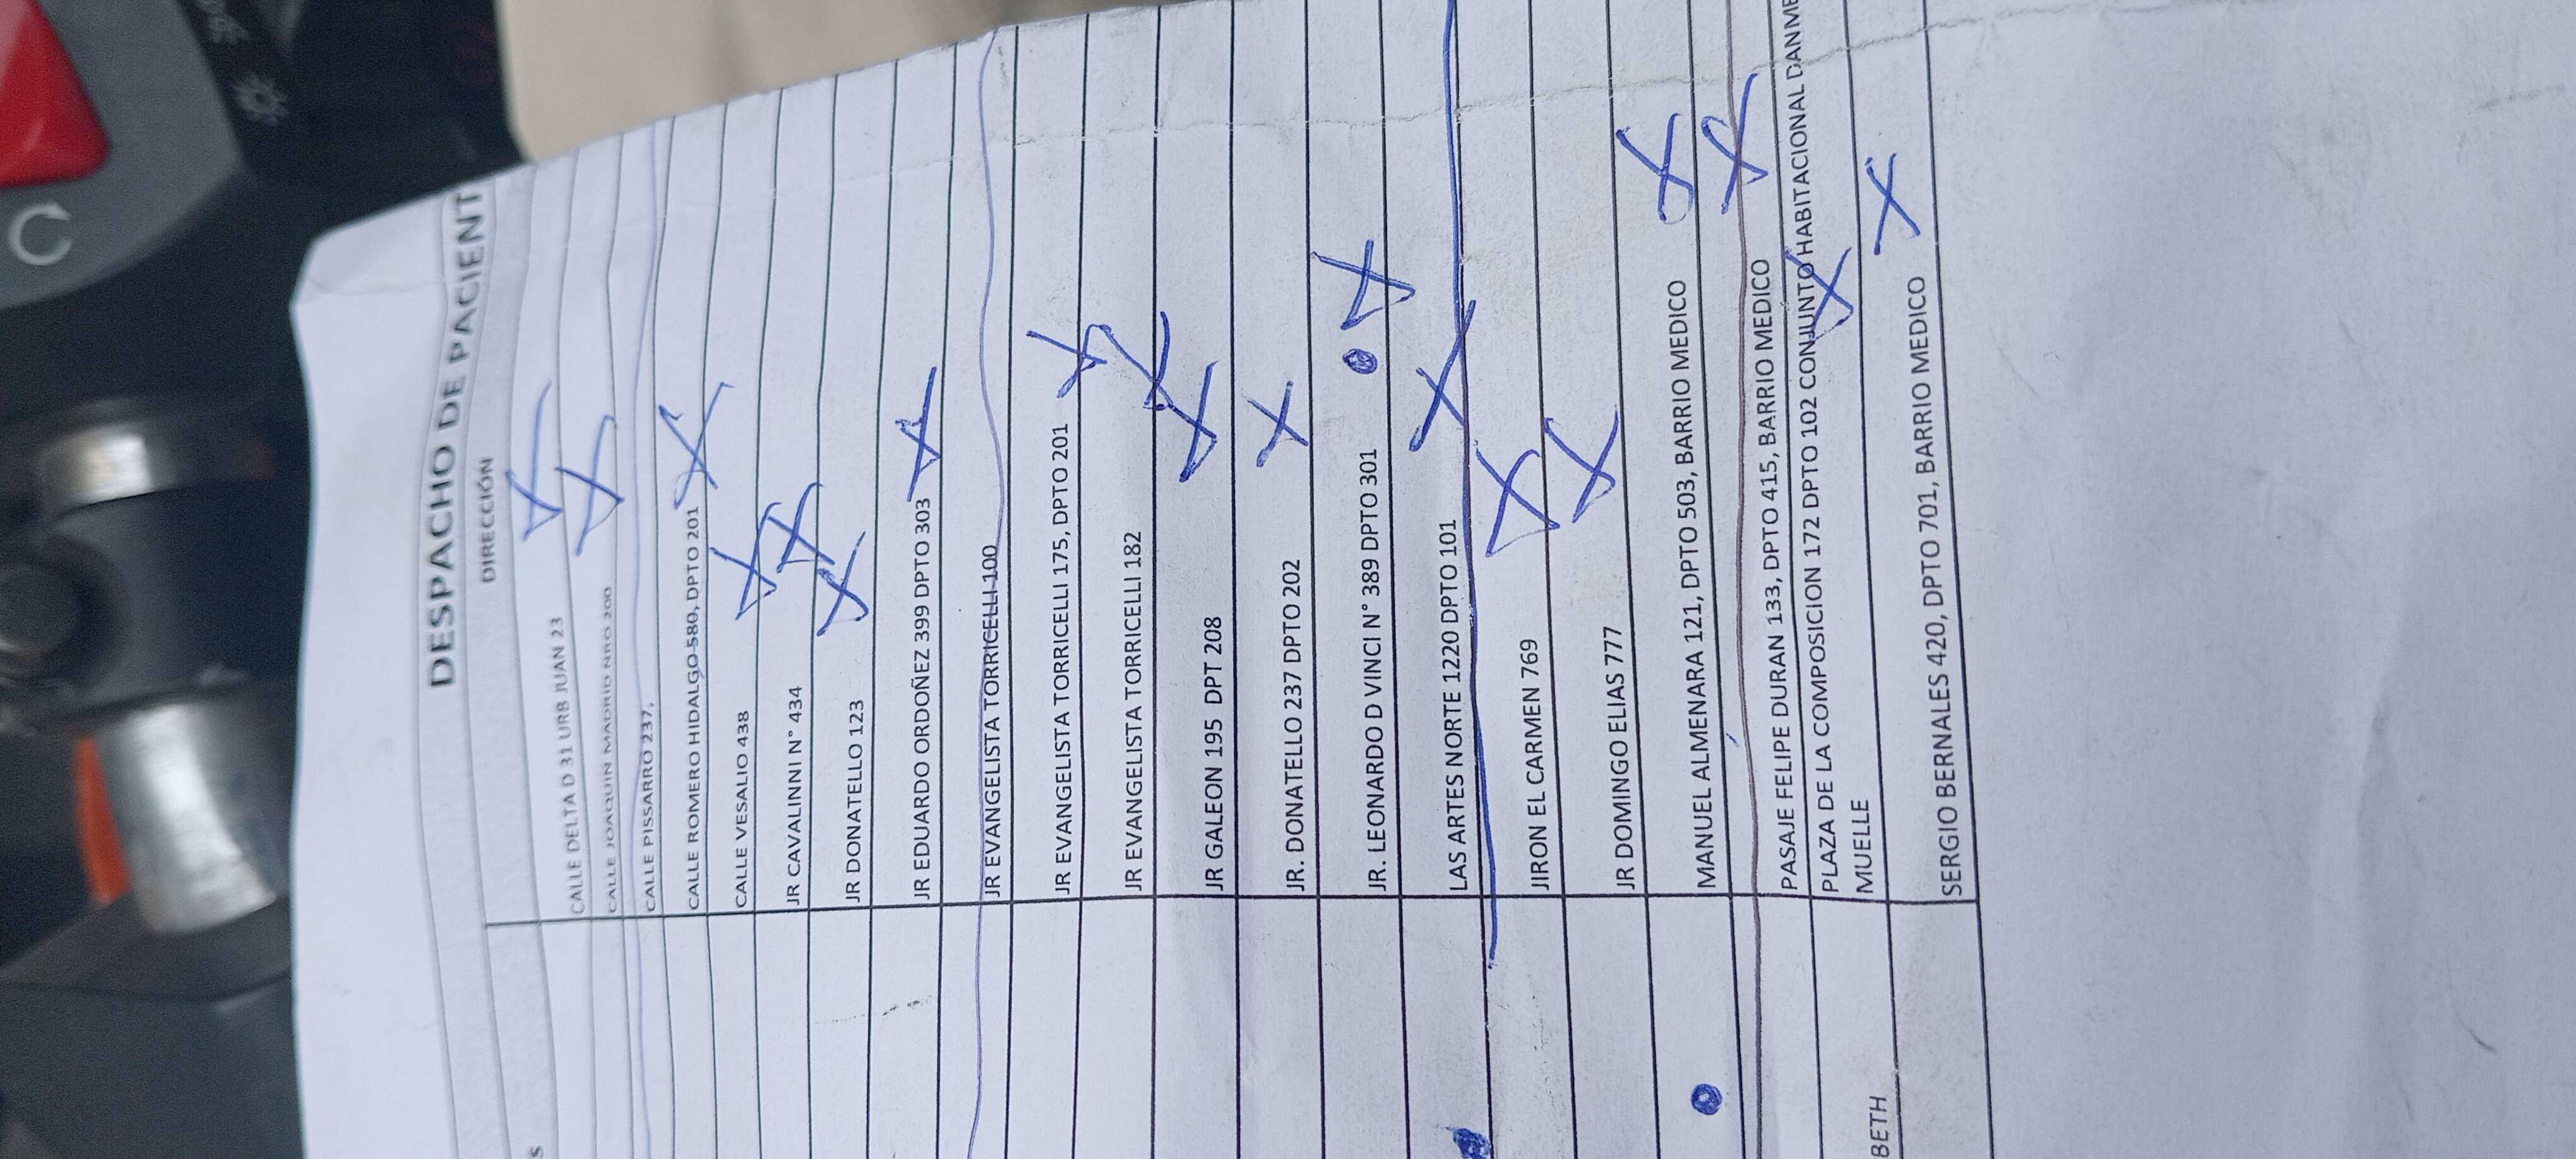 DESPACHO DE PACIENT
DIRECCIÓN
CALLE DELTA D 31 URB JUAN 23
CALLE JOAQUIN MADRID NRO 200
CALLE PISSARRO 237,
CALLE ROMERO HIDALGO 580, DPTO 201
CALLE VESALIO 438
JR CAVALINNI N° 434
JR DONATELLO 123
JR EDUARDO ORDOÑEZ 399 DPTO 303
JR EVANGELISTA TORRICELLI 100
JR EVANGELISTA TORRICELLI 175, DPTO 201
JR EVANGELISTA TORRICELLI 182
JR GALEON 195 DPT 208
JR. DONATELLO 237 DPTO 202
JR. LEONARDO D VINCI N° 389 DPTO 301
LAS ARTES NORTE 1220 DPTO 101
JIRON EL CARMEN 769
JR DOMINGO ELIAS 777
MANUEL ALMENARA 121, DPTO 503, BARRIO MEDICO
PASAJE FELIPE DURAN 133, DPTO 415, BARRIO MEDICO
PLAZA DE LA COMPOSICION 172 DPTO 102 CONJUNTO HABITACIONAL DANME
MUELLE
BETH
SERGIO BERNALES 420, DPTO 701, BARRIO MEDICO